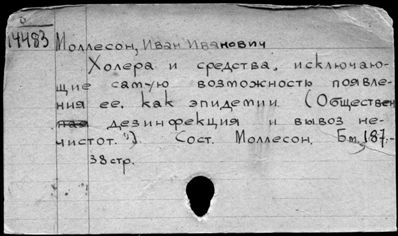 14483
Моллесон, Иван Иванович
Холера и средства, исключаю-
щие самую возможность появле-
ния ее, как эпидемии (Обществен
ная дезинфекция и вывоз не-
чистот.") Сост. Моллесон. Б.м., 187.-
38 стр.